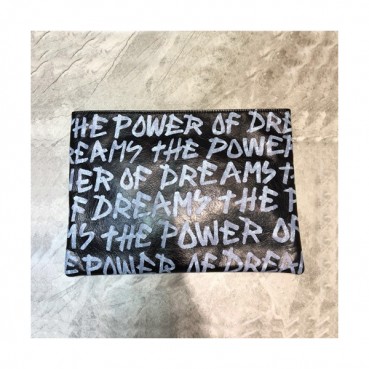 THE POWER OF DRE
REAMS THE POWER
ER OF DREAMS THE
OF DREAMS THE P
MS THE POWER OF
E POWER OF DREAM